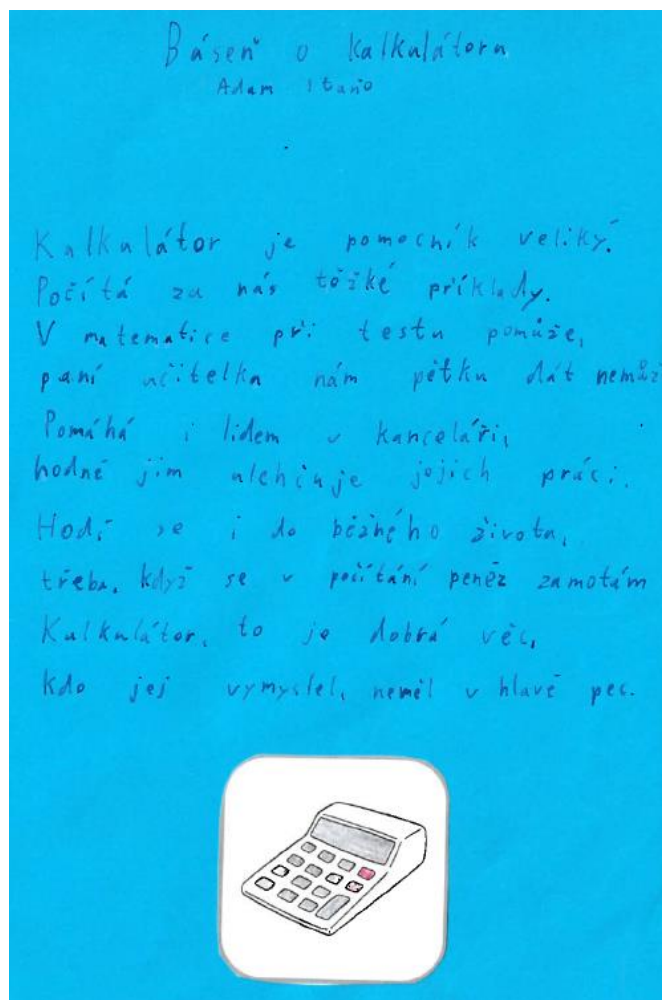 Báseň o kalkulátoru
Adam
Kalkulátor je pomocník veliký.
Počítá za nás těžké příklady.
V matematice při testu pomůže,
paní učitelka nám pětku dát nemůž
Pomáhá i lidem v kanceláři,
hodně jim ulehčuje jejich práci.
Hodí se i do běžného života,
třeba, když se v počítání peněz zamotám
Kalkulátor, to je dobrá věc,
kdo jej vymyslel, neměl v hlavě pec.